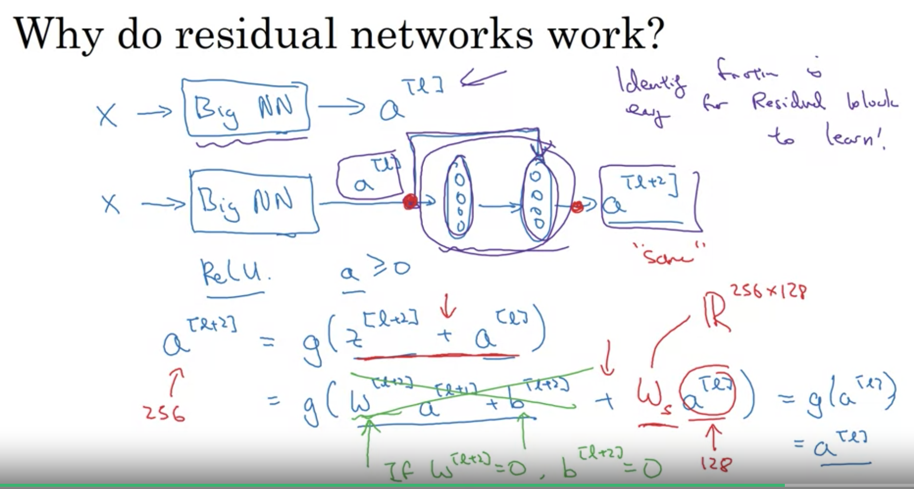 Why do residual networks work?
X → Big NN → a^[l]
Identity function is
easy for Residual block
to learn!
X → Big NN a^[l] → → a^[l+2]
"same"
ReLU. a ≥ 0
ℝ^256×128
a^[l+2] = g(z^[l+2] + a^[l])
256
= g(W^[l+2] a^[l+1] + b^[l+2] + W_s a^[l]) = g(a^[l])
= a^[l]
If W^[l+2] = 0, b^[l+2] = 0
128